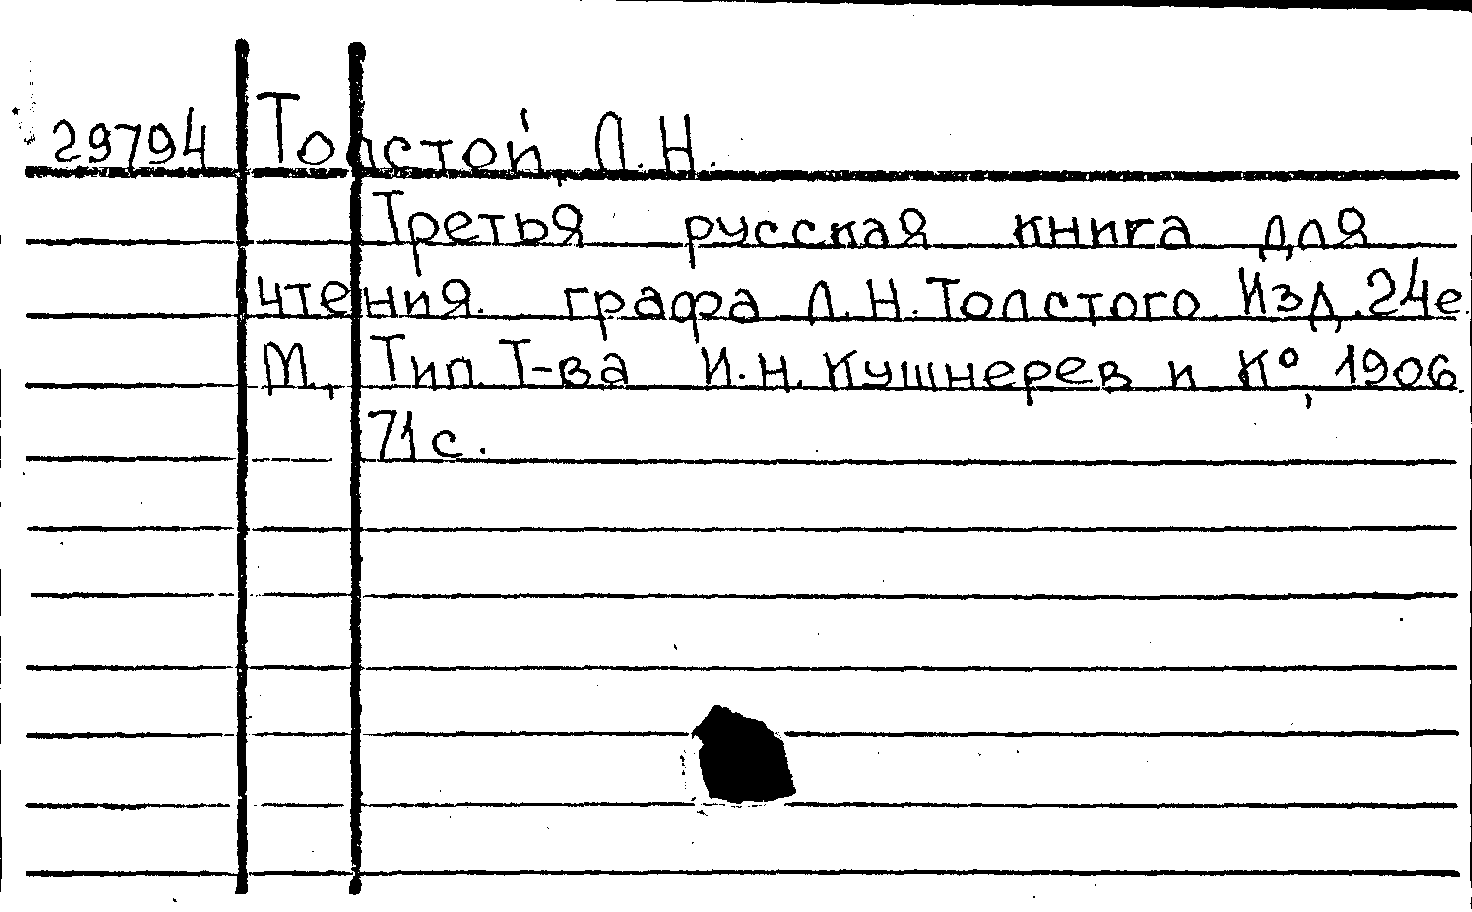 29794 Толстой, Л.Н.
Третья русская книга для
чтения. графа Л.Н.Толстого. Изд.24е
М., Тип. Т-ва И.Н.Кушнерев и К°, 1906.
71с.